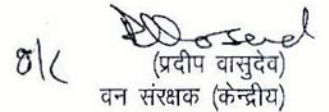 (प्रदीप वासुदेव)
वन संरक्षक (केन्द्रीय)